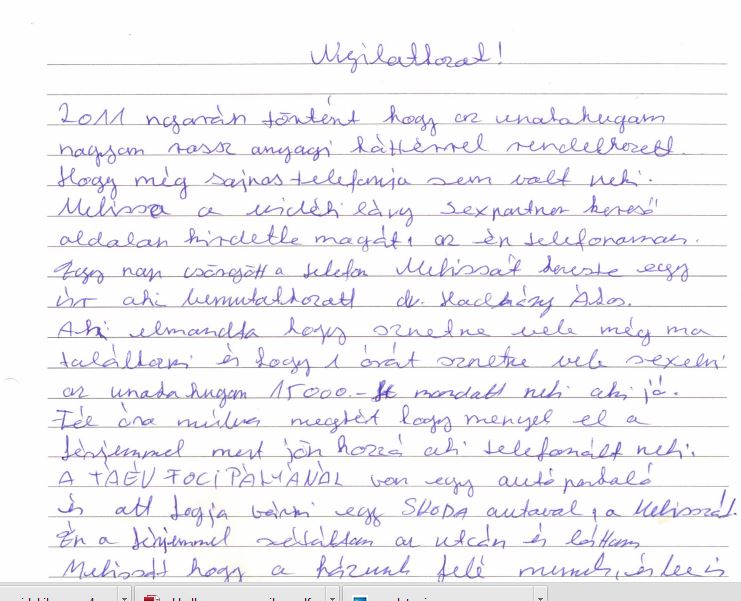 Nyilatkozat!
2011 nyarán történt hogy az unatahugam
nagyom rossz anyagi háttérrel rendelkezett.
Hogy még sajnos telefonja sem valt neki.
Melissa a vidéki lány sexpartner kereső
oldalan hirdette magát, az én telefonaman.
Egy nap csörgött a telefon Melissát kereste egy
úr aki bemutatkozatt dr. Hadházy Ákos.
Aki elmandta hogy sznetne vele még ma
találkozni és hogy 1 órát sznetne vele sexelni
az unatahugam 15000.-ft mandatt neki aki jő.
Fél óra múlva megkért hogy menyel el a
férjemmel mert jön hozzá aki telefonált neki.
A TAÉV FOCIPÁLYÁNÁL van egy autó parkoló
és att fogja várni egy SKODA autaval, a Melisszát.
Én a férjemmel sétáltam az utcán és láttam
Melissát hogy a házunk felé mennek, és